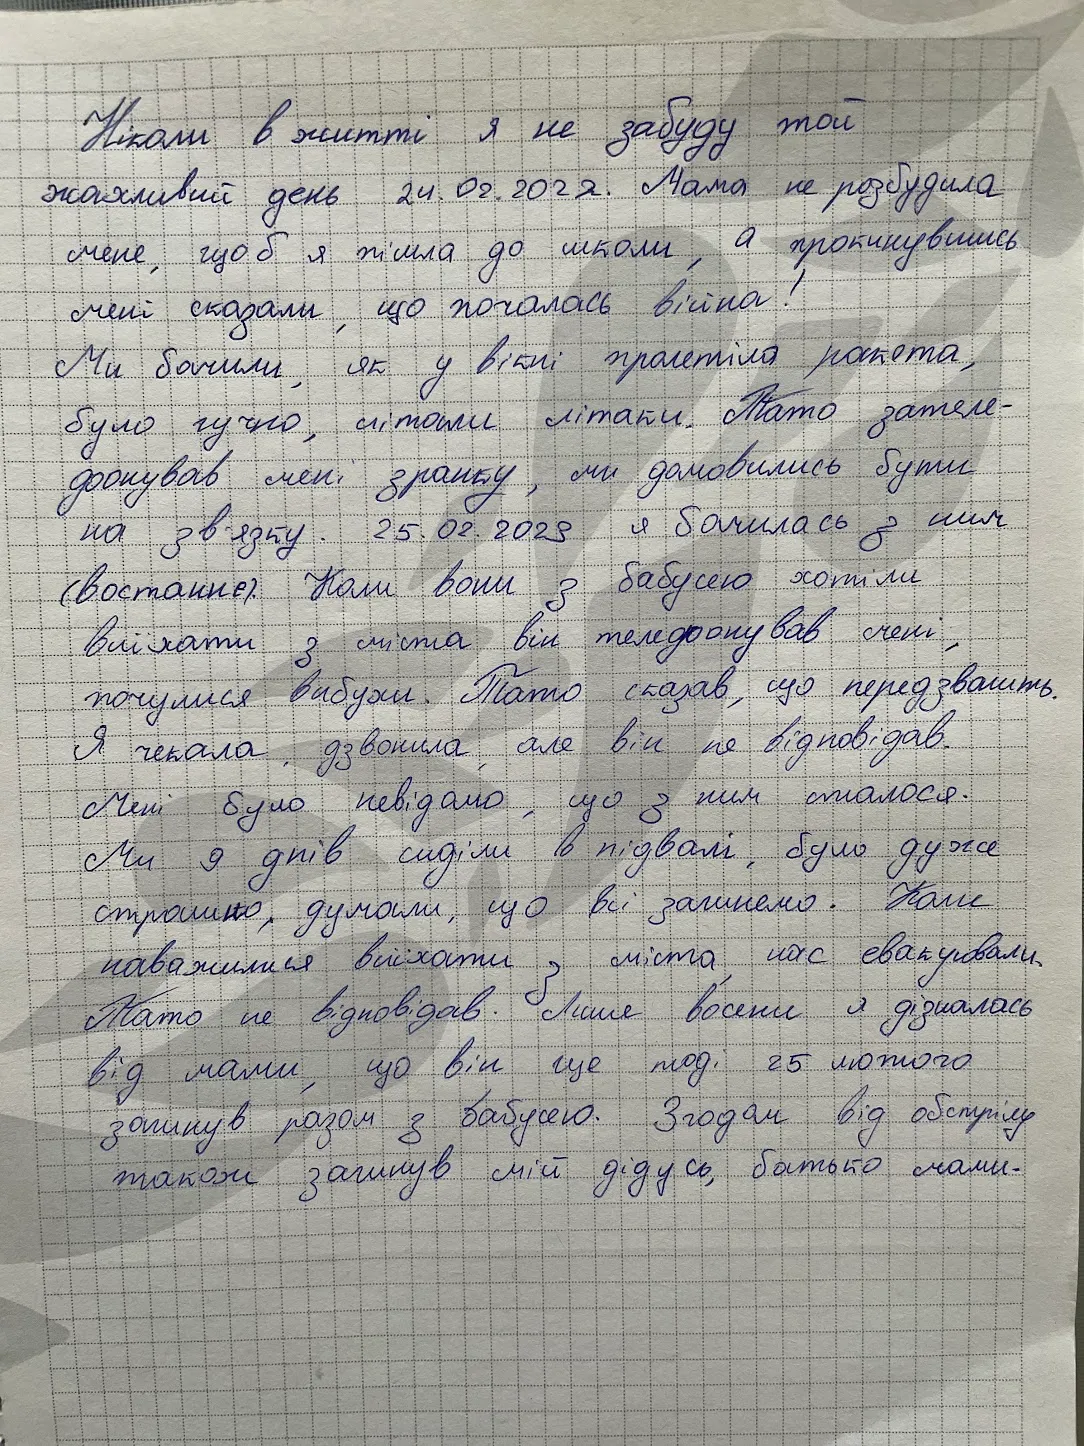 Ніколи в житті я не забуду той
жахливий день 24.02.2022. Мама не розбудила
мене, щоб я пішла до школи, а прокинувшись
мені сказали, що почалась війна!
Ми бачили, як у вікні пролетіла ракета,
було гучно, літали літаки. Тато зателе-
фонував мені зранку, ми домовились бути
на зв'язку. 25.02.2023 я бачилась з ним
(востаннє). Коли вони з бабусею хотіли
виїхати з міста він телефонував мені,
почулися вибухи. Тато сказав, що передзвонить.
Я чекала, дзвонила, але він не відповідав.
Мені було невідомо, що з ним сталося.
Ми 9 днів сиділи в підвалі, було дуже
страшно, думали, що всі загинемо. Коли
наважилися виїхати з міста, нас евакуювали.
Тато не відповідав. Лише восени я дізналась
від мами, що він ще тоді 25 лютого
загинув разом з бабусею. Згодом від обстрілу
також загинув мій дідусь, батько мами.